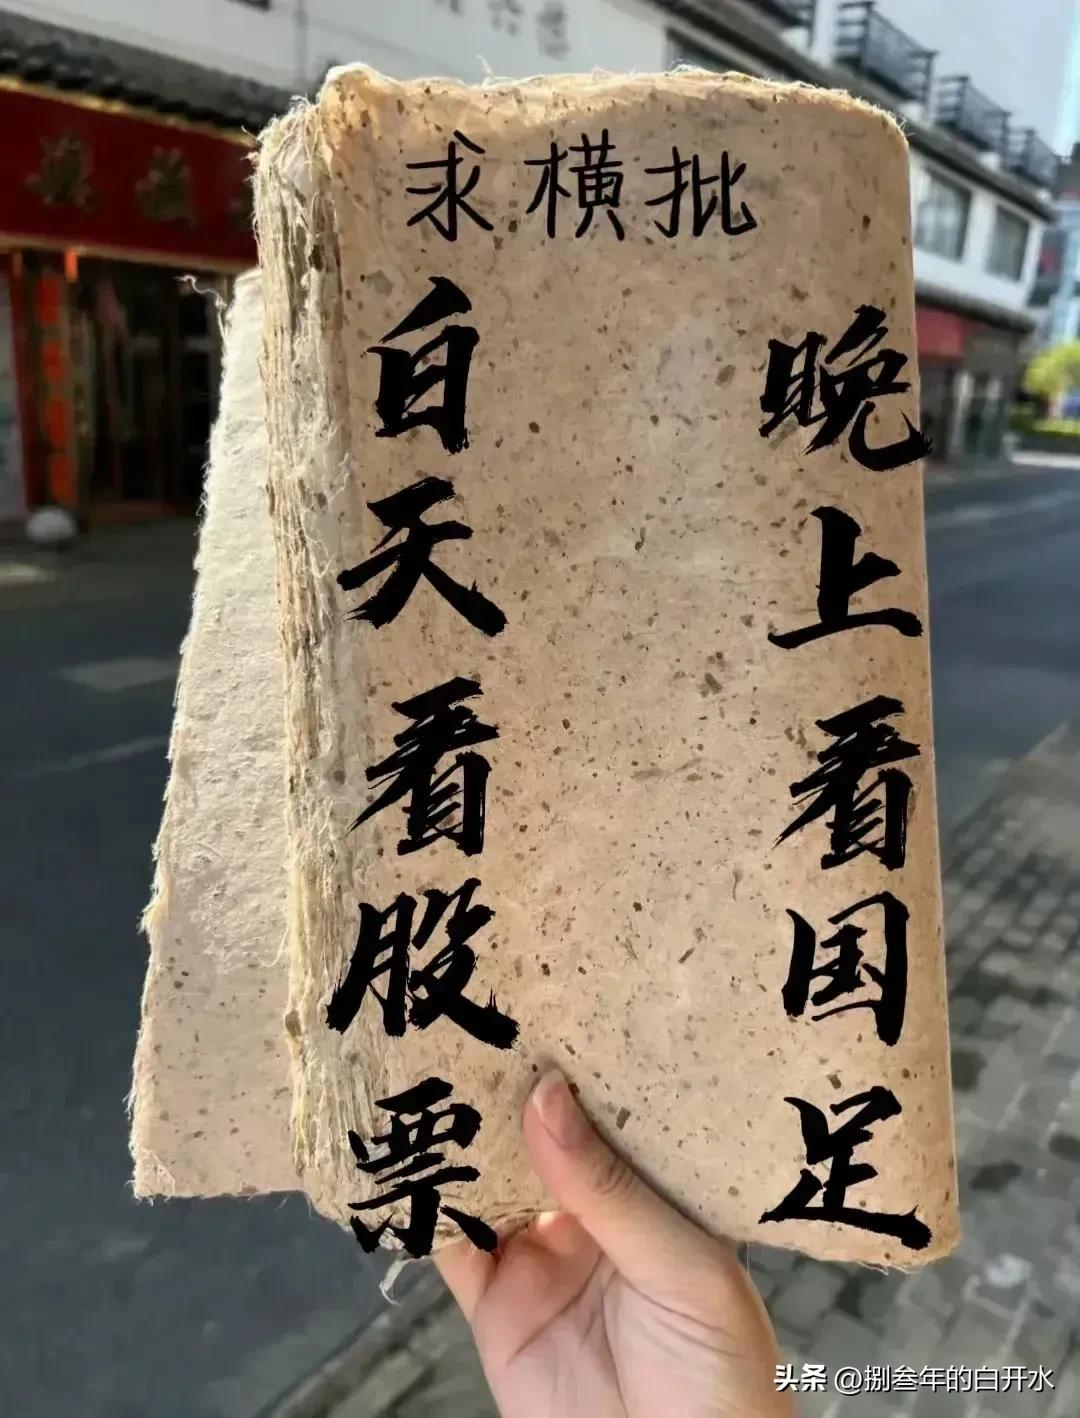 求横批
白天看股票
晚上看国足
头条 @捌叁年的白开水